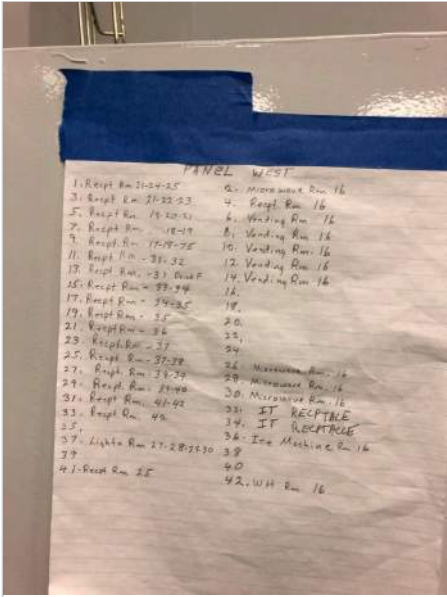 PANEL WEST
1. Recpt Rm 21-24-25
3. Recpt Rm 21-22-23
5. Recpt Rm 19-20-21
7. Recpt Rm -18-19
9. Recpt. Rm 17-18-75
11. Recpt Rm - 31-32
13. Recpt Rm. -31
15. Recpt Rm - 33-34
17. Recpt Rm - 34-35
19. Recpt Rm - 35
21. Recpt Rm - 36
23. Recpt. Rm. - 37
25. Recpt. Rm - 37-38
27. Recpt. Rm. 38-39
29. Recpt. Rm. 39-40
31. Recpt Rm. 41-42
33. Recpt Rm. 42
35.
37. Lights Rm 27-28-29-30
39
41-Recpt Rm 25
2. Microwave Rm 16
4. Recpt. Rm 16
6. Vending Rm 16
8. Vending Rm 16
10. Vending Rm. 16
12 Vending Rm. 16
14. Vending Rm. 16
16.
18.
20.
22.
24
26. Microwave Rm. 16
28. Microwave Rm. 16
30. Microwave Rm. 16
32. IT RECPTACLE
34. IT RECPTACLE
36. Ice Machine Rm 16
38
40
42. WH Rm 16